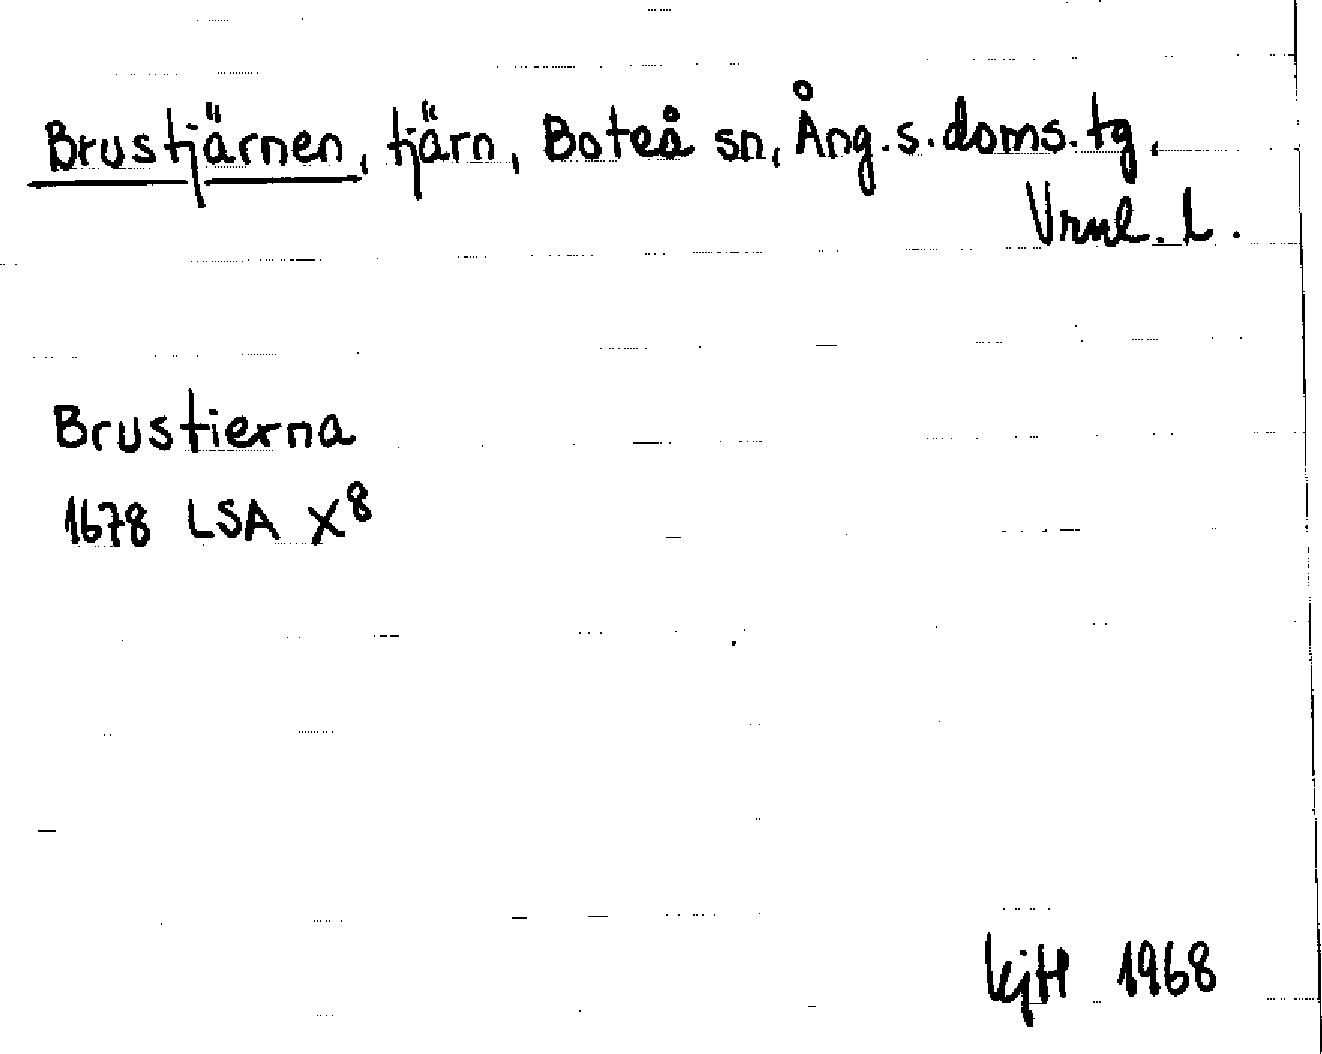 Brustjärnen, tjärn, Boteå sn, Ång.s.doms.tg.
Vrnl.l.
Brustierna
1678 LSA X8
KjH 1968